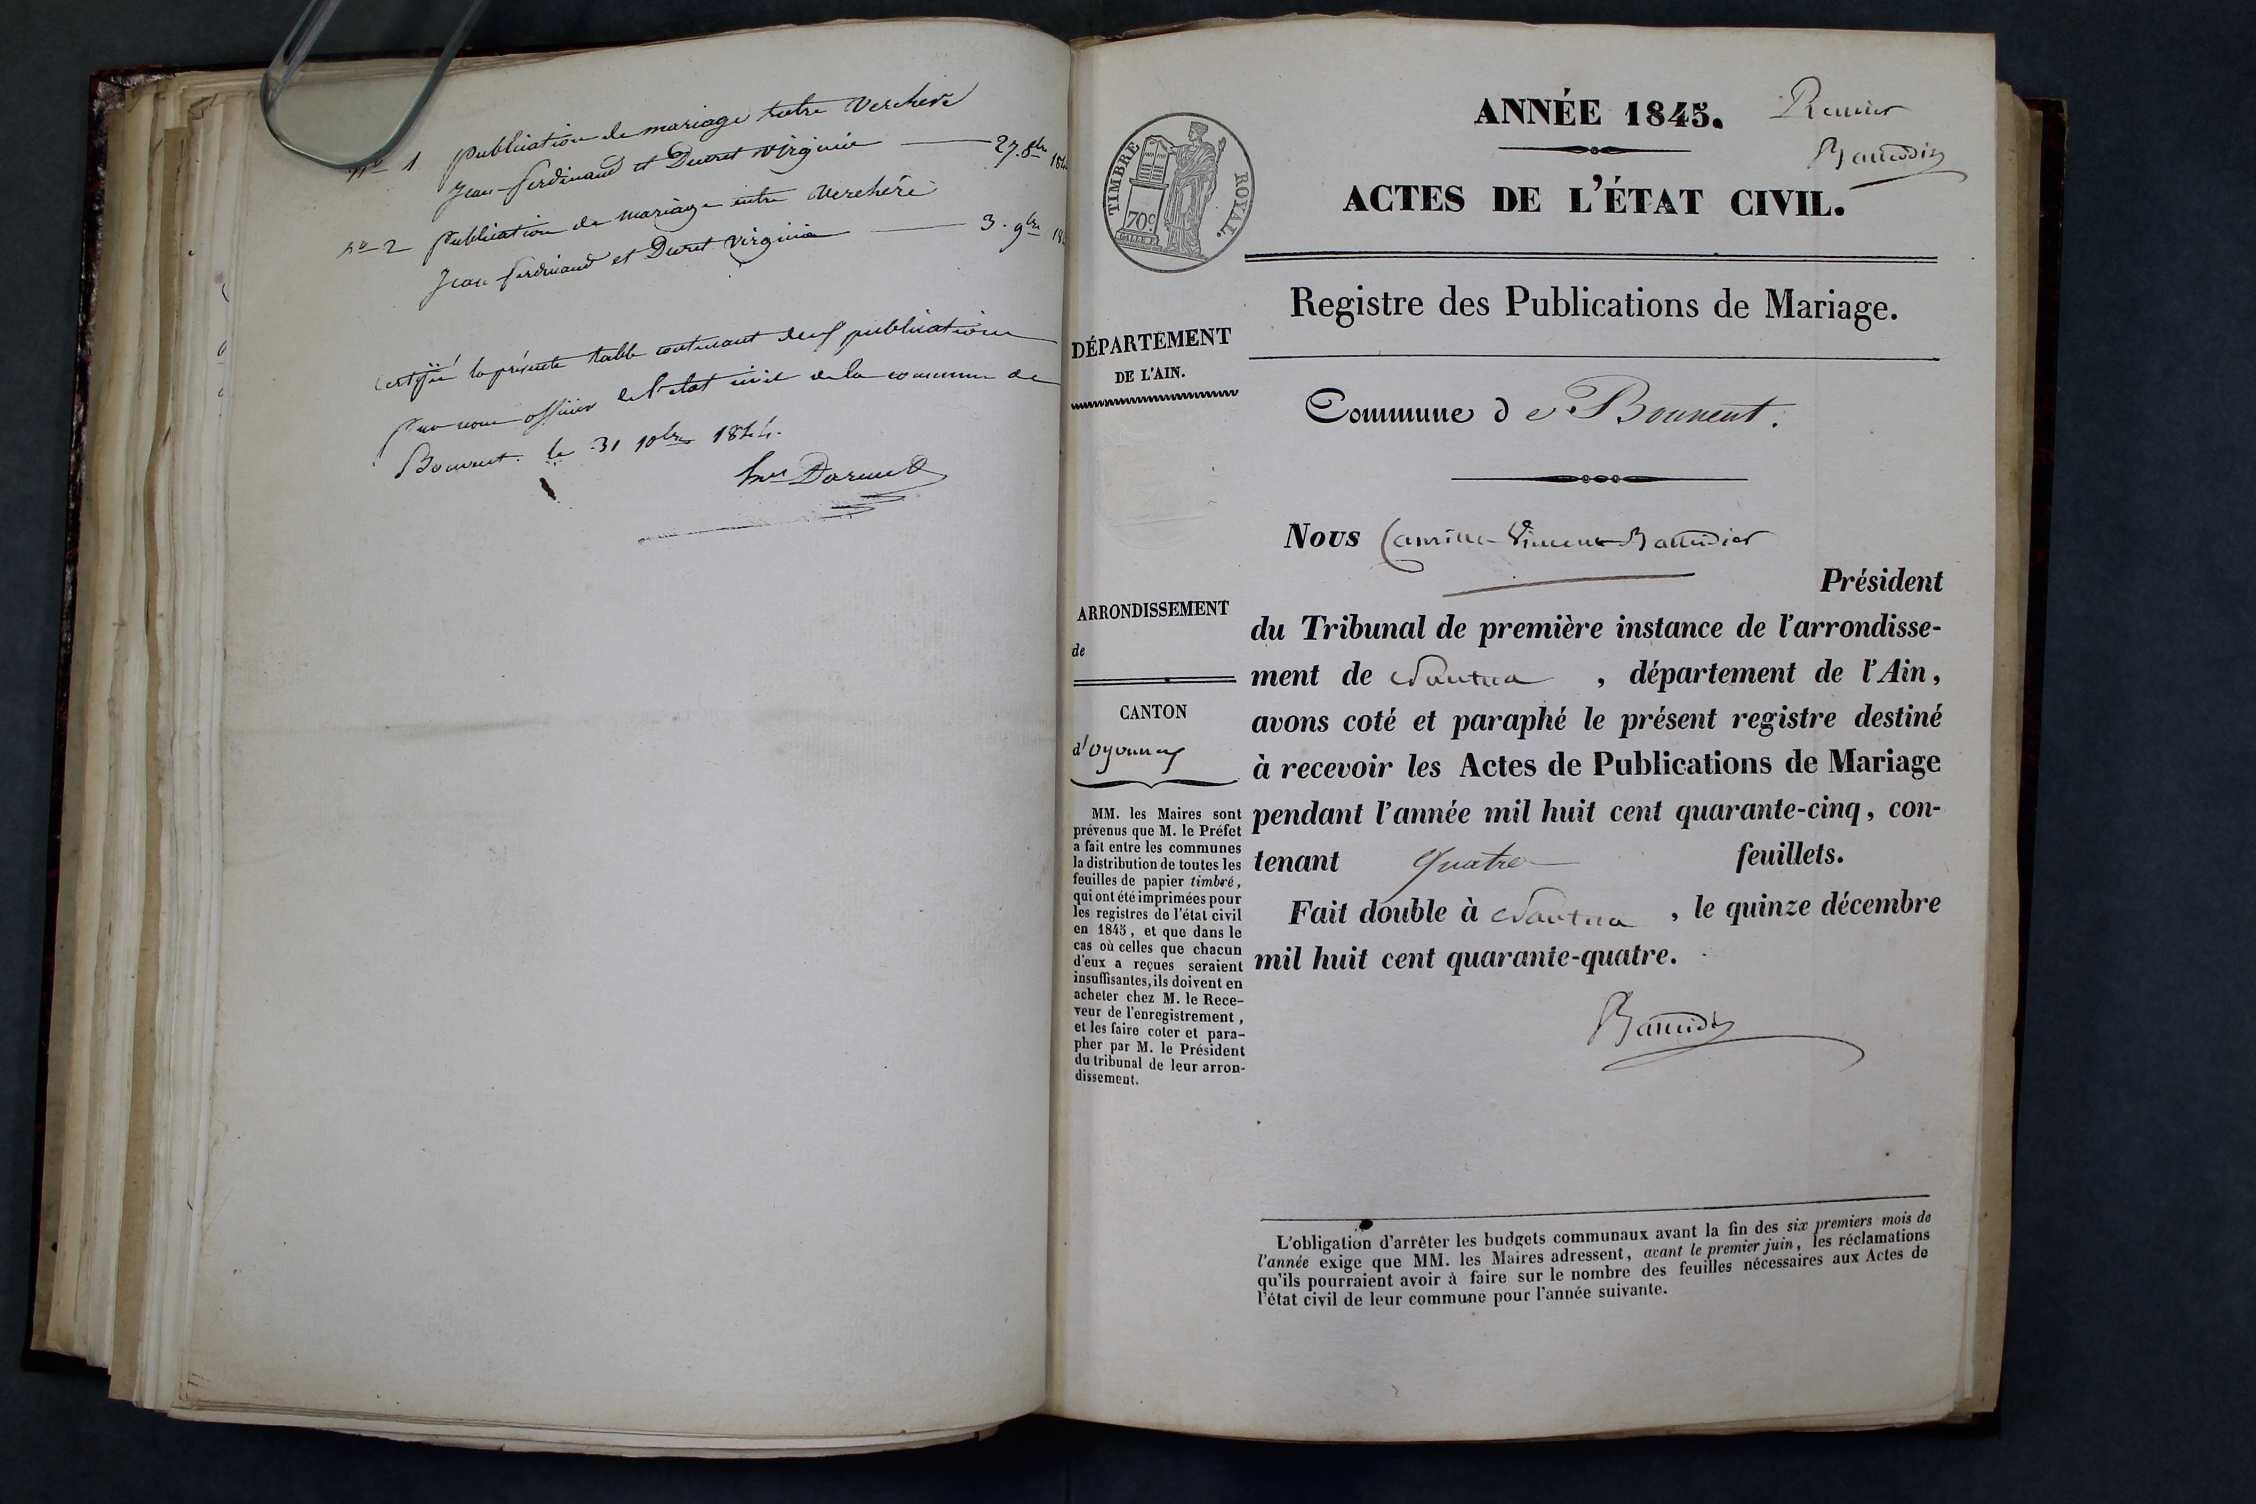 nº 1 Publication de mariage entre Verchère
Jean-ferdinand et Ducret virginie 27. 8bre
nº 2 Publication de mariage entre Verchère
Jean ferdinand et Ducret virginie 3. 9bre
Certifié la présente table contenant deux publications
Par nous officier de l'etat civil de la commune de
Bouvent le 31 10bre 1844.
ANNÉE 1845.
Premier
ACTES DE L'ÉTAT CIVIL.
TIMBRE ROYAL.
70 c.
Registre des Publications de Mariage.
DÉPARTEMENT
DE L'AIN.
Commune de Bouvent.
Nous Camille Vincent Baudier
Président
du Tribunal de première instance de l'arrondisse-
ment de Nantua, département de l'Ain,
avons coté et paraphé le présent registre destiné
à recevoir les Actes de Publications de Mariage
pendant l'année mil huit cent quarante-cinq, con-
tenant quatre feuillets.
Fait double à Nantua, le quinze décembre
mil huit cent quarante-quatre.
ARRONDISSEMENT
de
CANTON
d'Oyonnax
MM. les Maires sont
prévenus que M. le Préfet
a fait entre les communes
la distribution de toutes les
feuilles de papier timbré,
qui ont été imprimées pour
les registres de l'état civil
en 1845, et que dans le
cas où celles que chacun
d'eux a reçues seraient
insuffisantes, ils doivent en
acheter chez M. le Rece-
veur de l'enregistrement,
et les faire coter et para-
pher par M. le Président
du tribunal de leur arron-
dissement.
L'obligation d'arrêter les budgets communaux avant la fin des six premiers mois de
l'année exige que MM. les Maires adressent, avant le premier juin, les réclamations
qu'ils pourraient avoir à faire sur le nombre des feuilles nécessaires aux Actes de
l'état civil de leur commune pour l'année suivante.